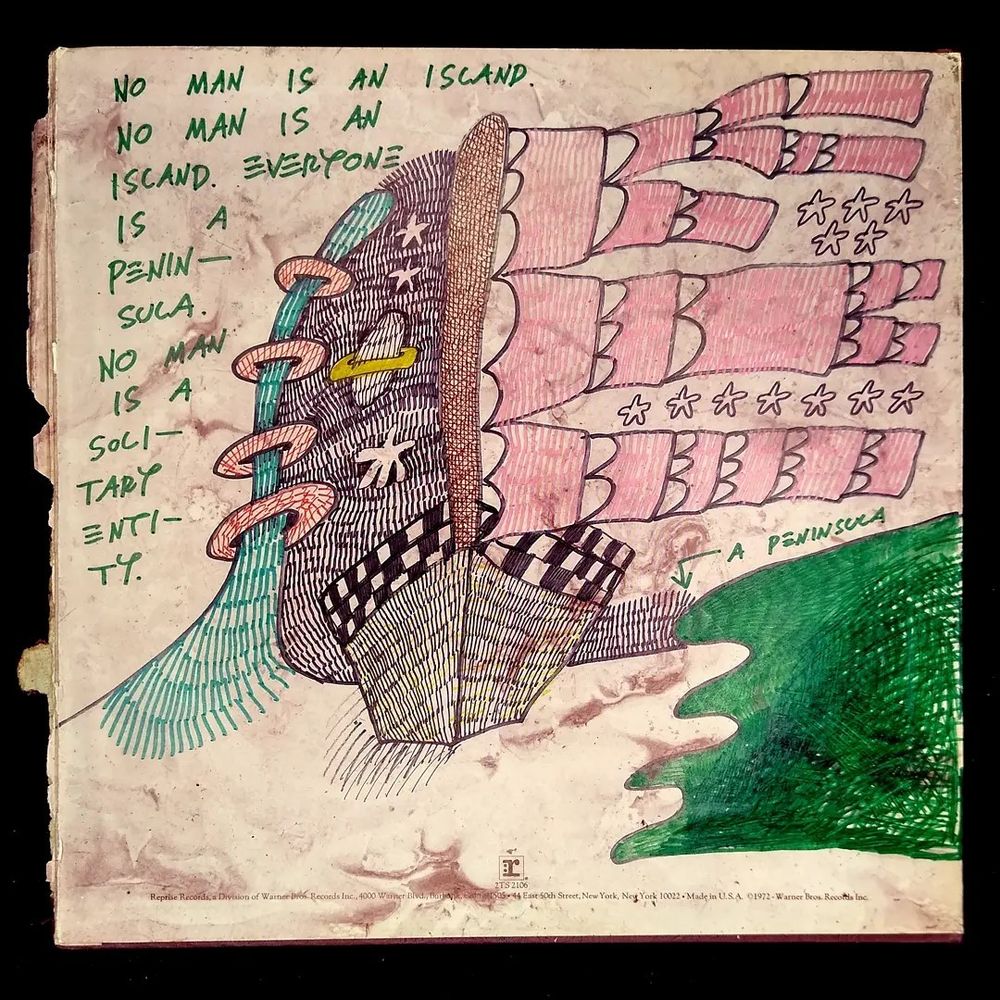 NO MAN IS AN ISLAND.
NO MAN IS AN
ISLAND. EVERYONE
IS A
PENIN—
SULA.
NO MAN
IS A
SOLI—
TARY
ENTI—
TY.
A PENINSULA
r
2TS 2106
Reprise Records, a Division of Warner Bros. Records Inc., 4000 Warner Blvd., Burbank, Calif. 91505 • 44 East 50th Street, New York, New York 10022 • Made in U.S.A. ©1972 - Warner Bros. Records Inc.